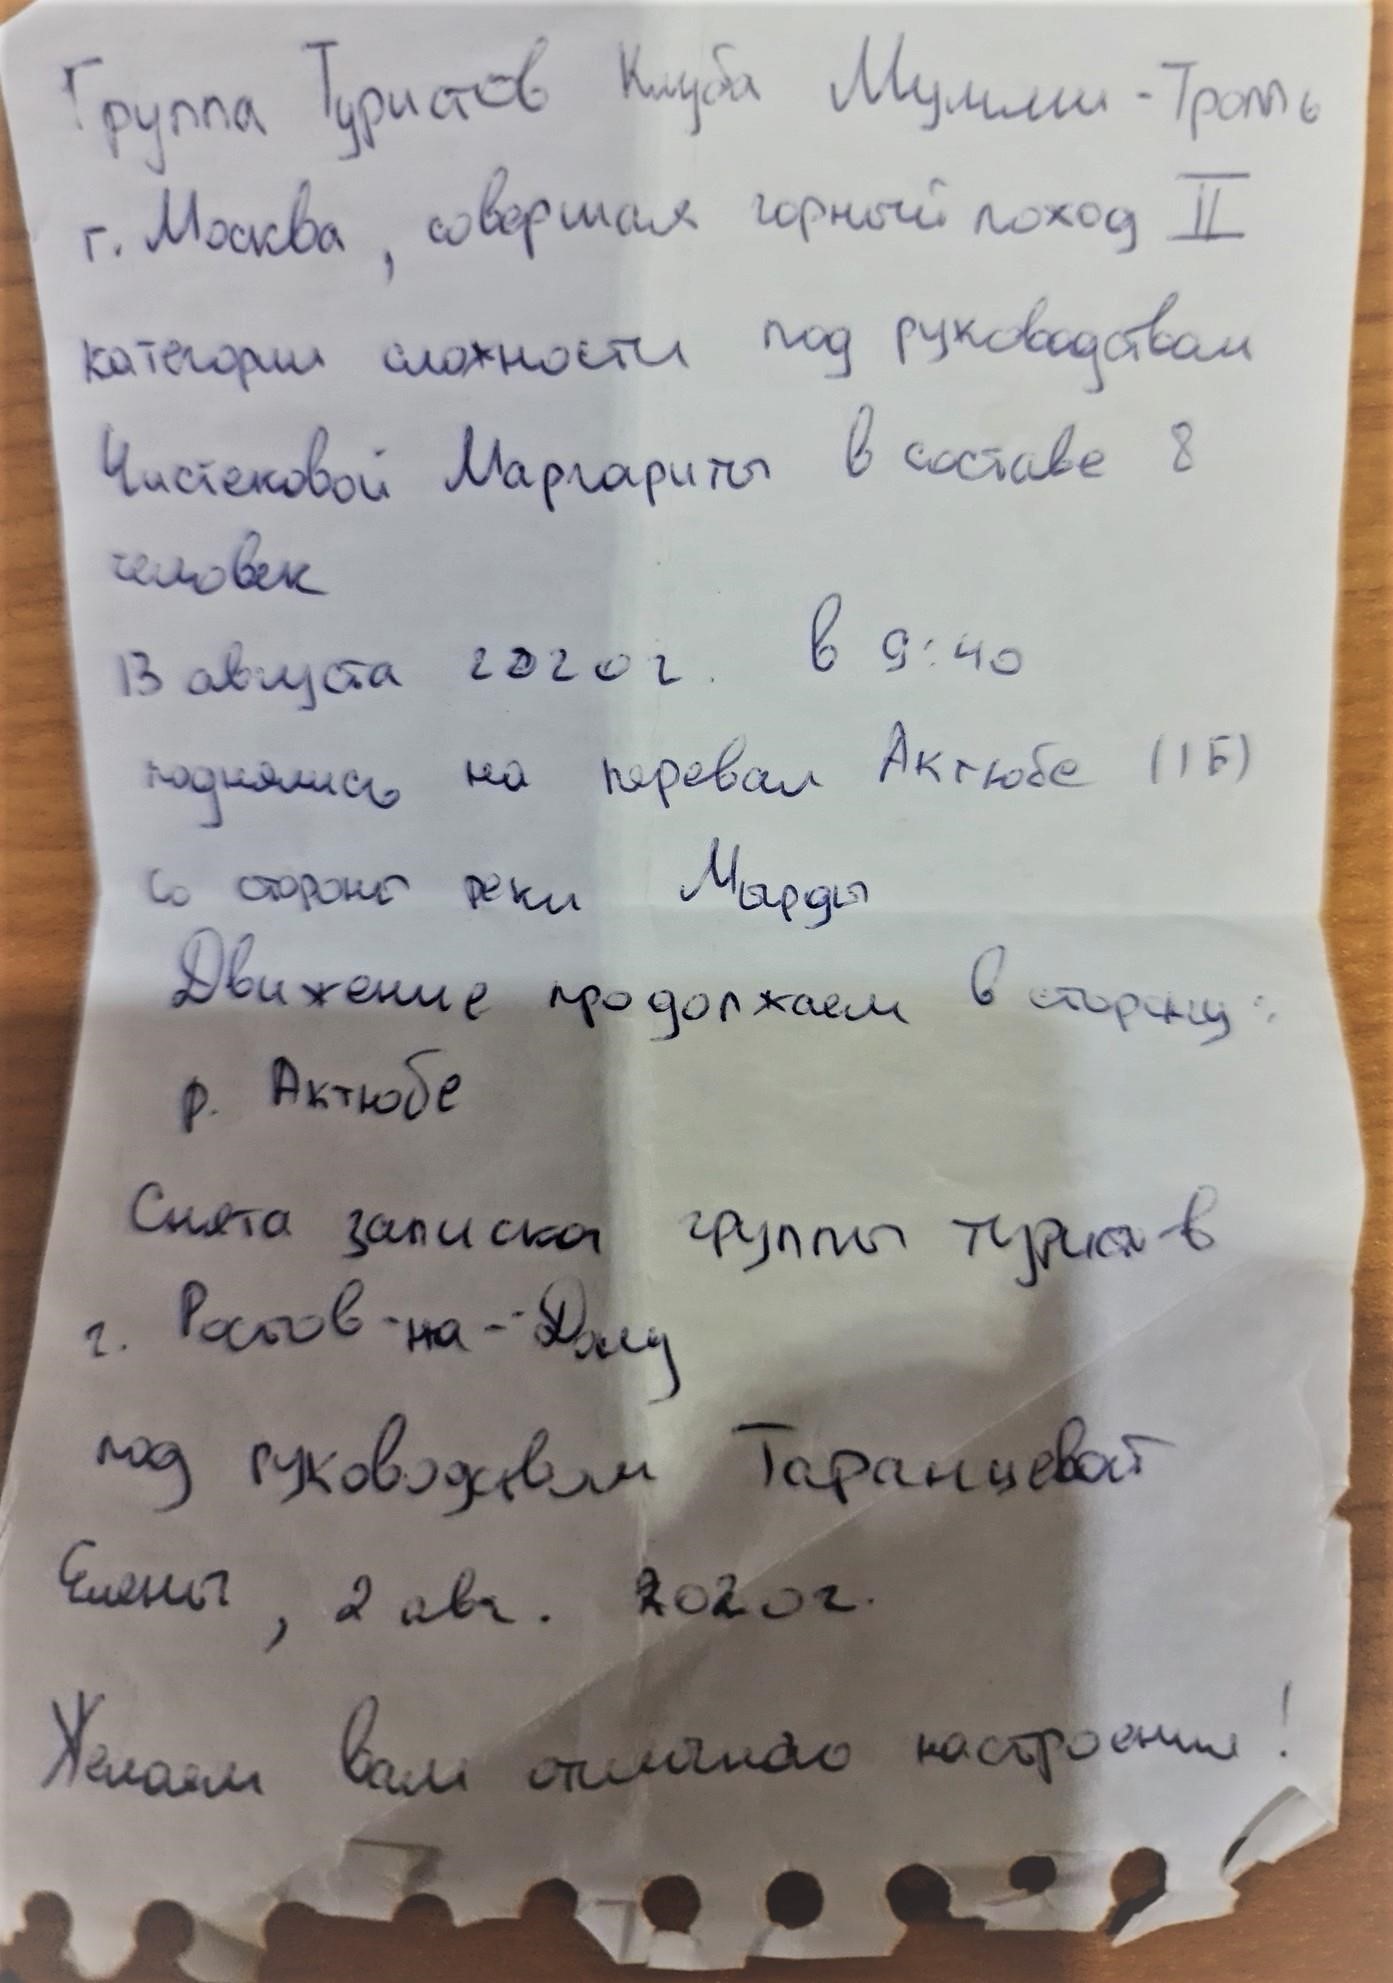 Группа Туристов Клуба Мумми-Тролль
г. Москва, совершая горный поход II
категории сложности под руководством
Чистековой Маргариты в составе 8
человек
13 августа 2020 г. в 9:40
поднялись на перевал Актюбе (1Б)
со стороны реки Мырды
Движение продолжаем в сторону:
р. Актюбе
Снята записка группы туристов
г. Ростов-на-Дону
под руководством Таранцевой
Елены, 2 авг. 2020г.
Желаем вам отличного настроения!